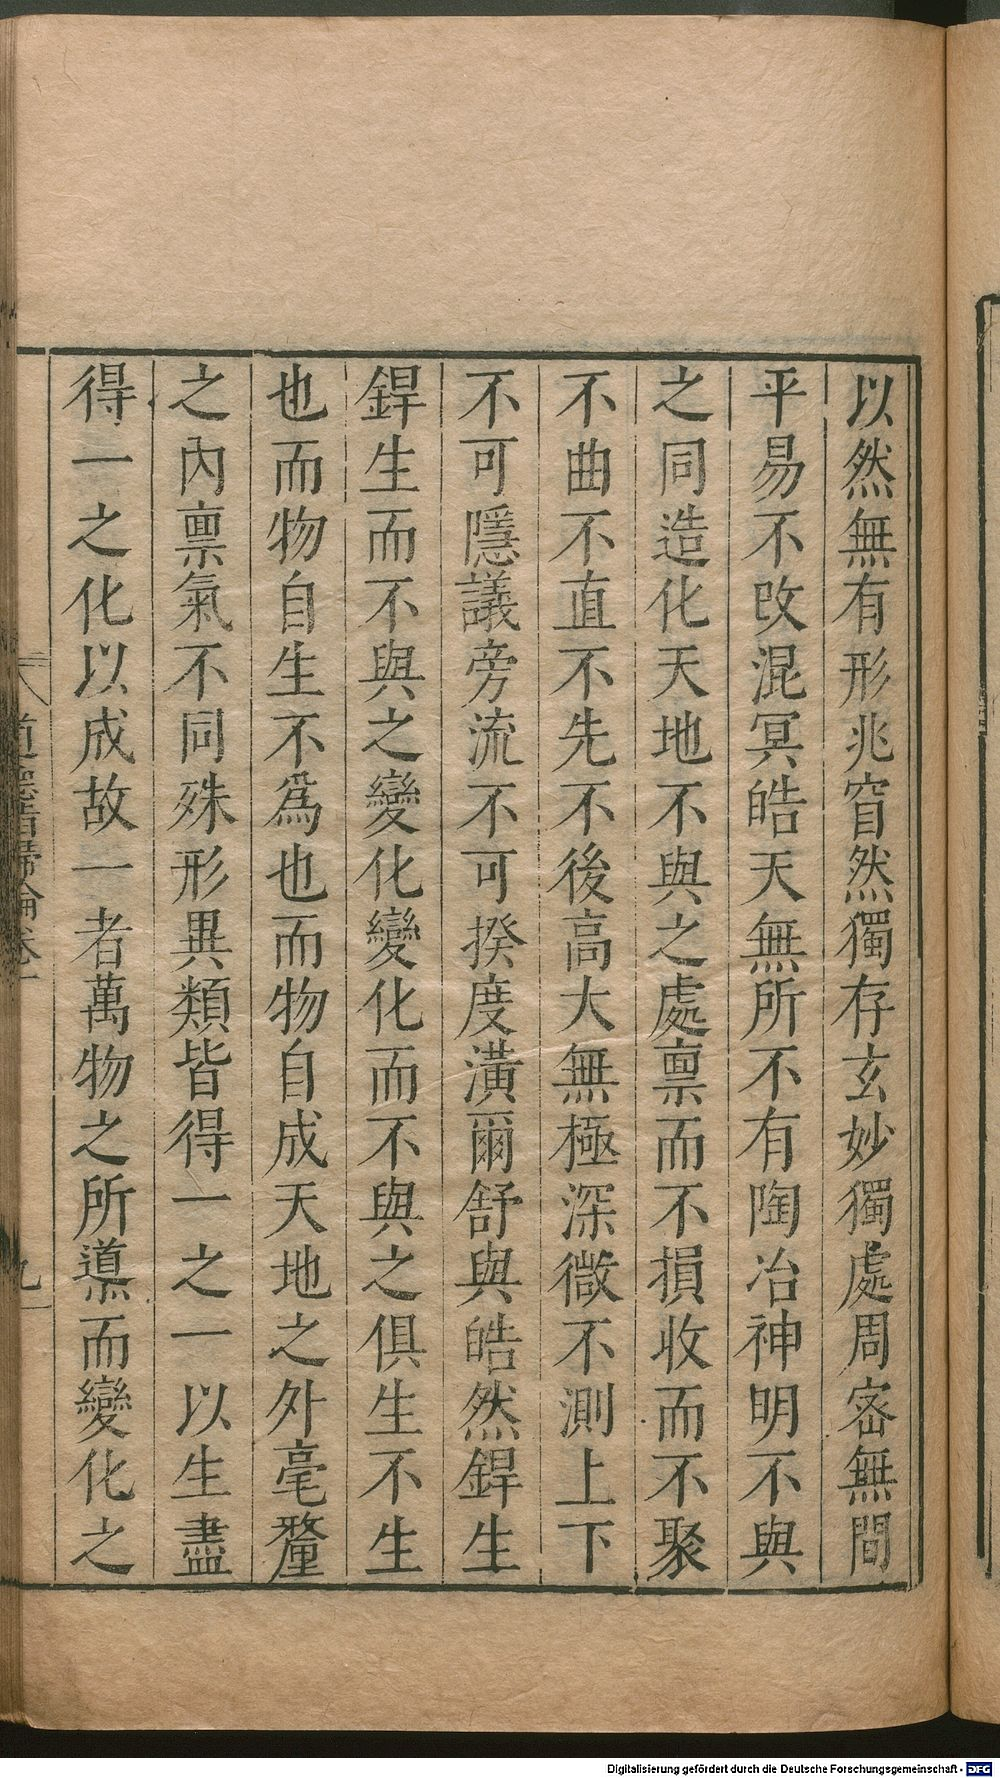 以然無有形兆窅然獨存玄妙獨處周密無間
平易不改混冥皓天無所不有陶冶神明不與
之同造化天地不與之處稟而不損收而不聚
不曲不直不先不後高大無極深微不測上下
不可隱議旁流不可揆度潢爾舒與皓然銲生
銲生而不與之變化變化而不與之俱生不生
也而物自生不為也而物自成天地之外毫釐
之內稟氣不同殊形異類皆得一之一以生盡
得一之化以成故一者萬物之所導而變化之
道德指歸論卷一
九
Digitalisierung gefördert durch die Deutsche Forschungsgemeinschaft - DFG